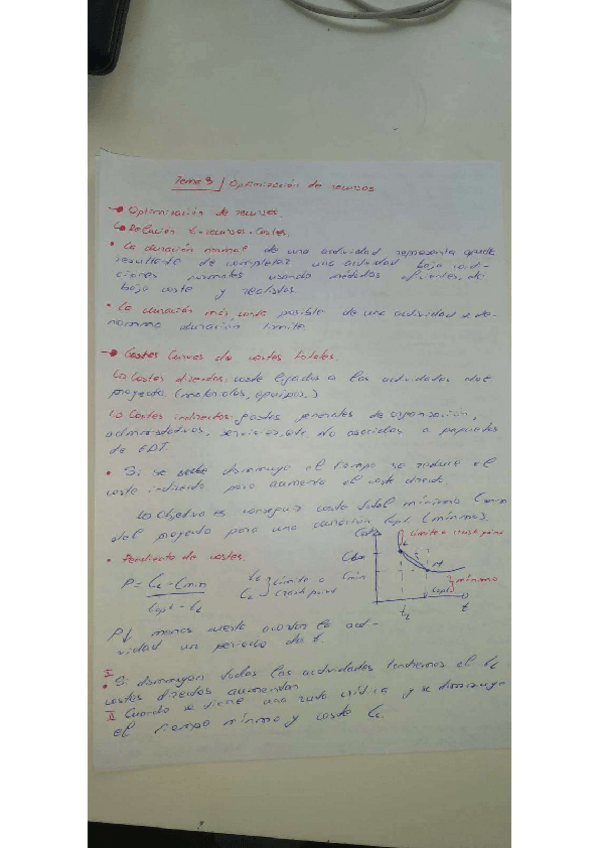 Tema 3 / Optimización de recursos
→ Optimización de recursos.
↳ Relación t-recursos-costes.
• La duración normal de una actividad representa
resultante de completar una actividad bajo condi-
ciones normales usando métodos eficientes, de
bajo coste y realistas
• La duración más corta posible de una actividad se de-
nomina duración límite
→ Costes Curvas de costes totales.
↳ Costes directos: coste ligados a las actividades del
proyecto (materiales, equipos..)
↳ Costes indirectos: gastos generales de organización,
administrativos, servicios, etc No asociados a paquetes
de EDT.
• Si se disminuye el tiempo se reduce el
coste indirecto pero aumenta el coste directo.
↳ Objetivo es conseguir coste total mínimo
del proyecto para una duración topt. (mínimo).
• Pendiente de costes.
P = CL - Cmin
topt - tL
tL
CL } límite o
crash point
Coste
límite o crash point
Cmin
mínimo
topt
tL
t
P↓ menos cuesta acortar la act-
vidad un periodo de t.
I
• Si disminuyen todas las actividades tendremos el tL
costes directos aumentan
II Cuando se tiene una ruta crítica y se disminuye
el tiempo mínimo y coste CL.